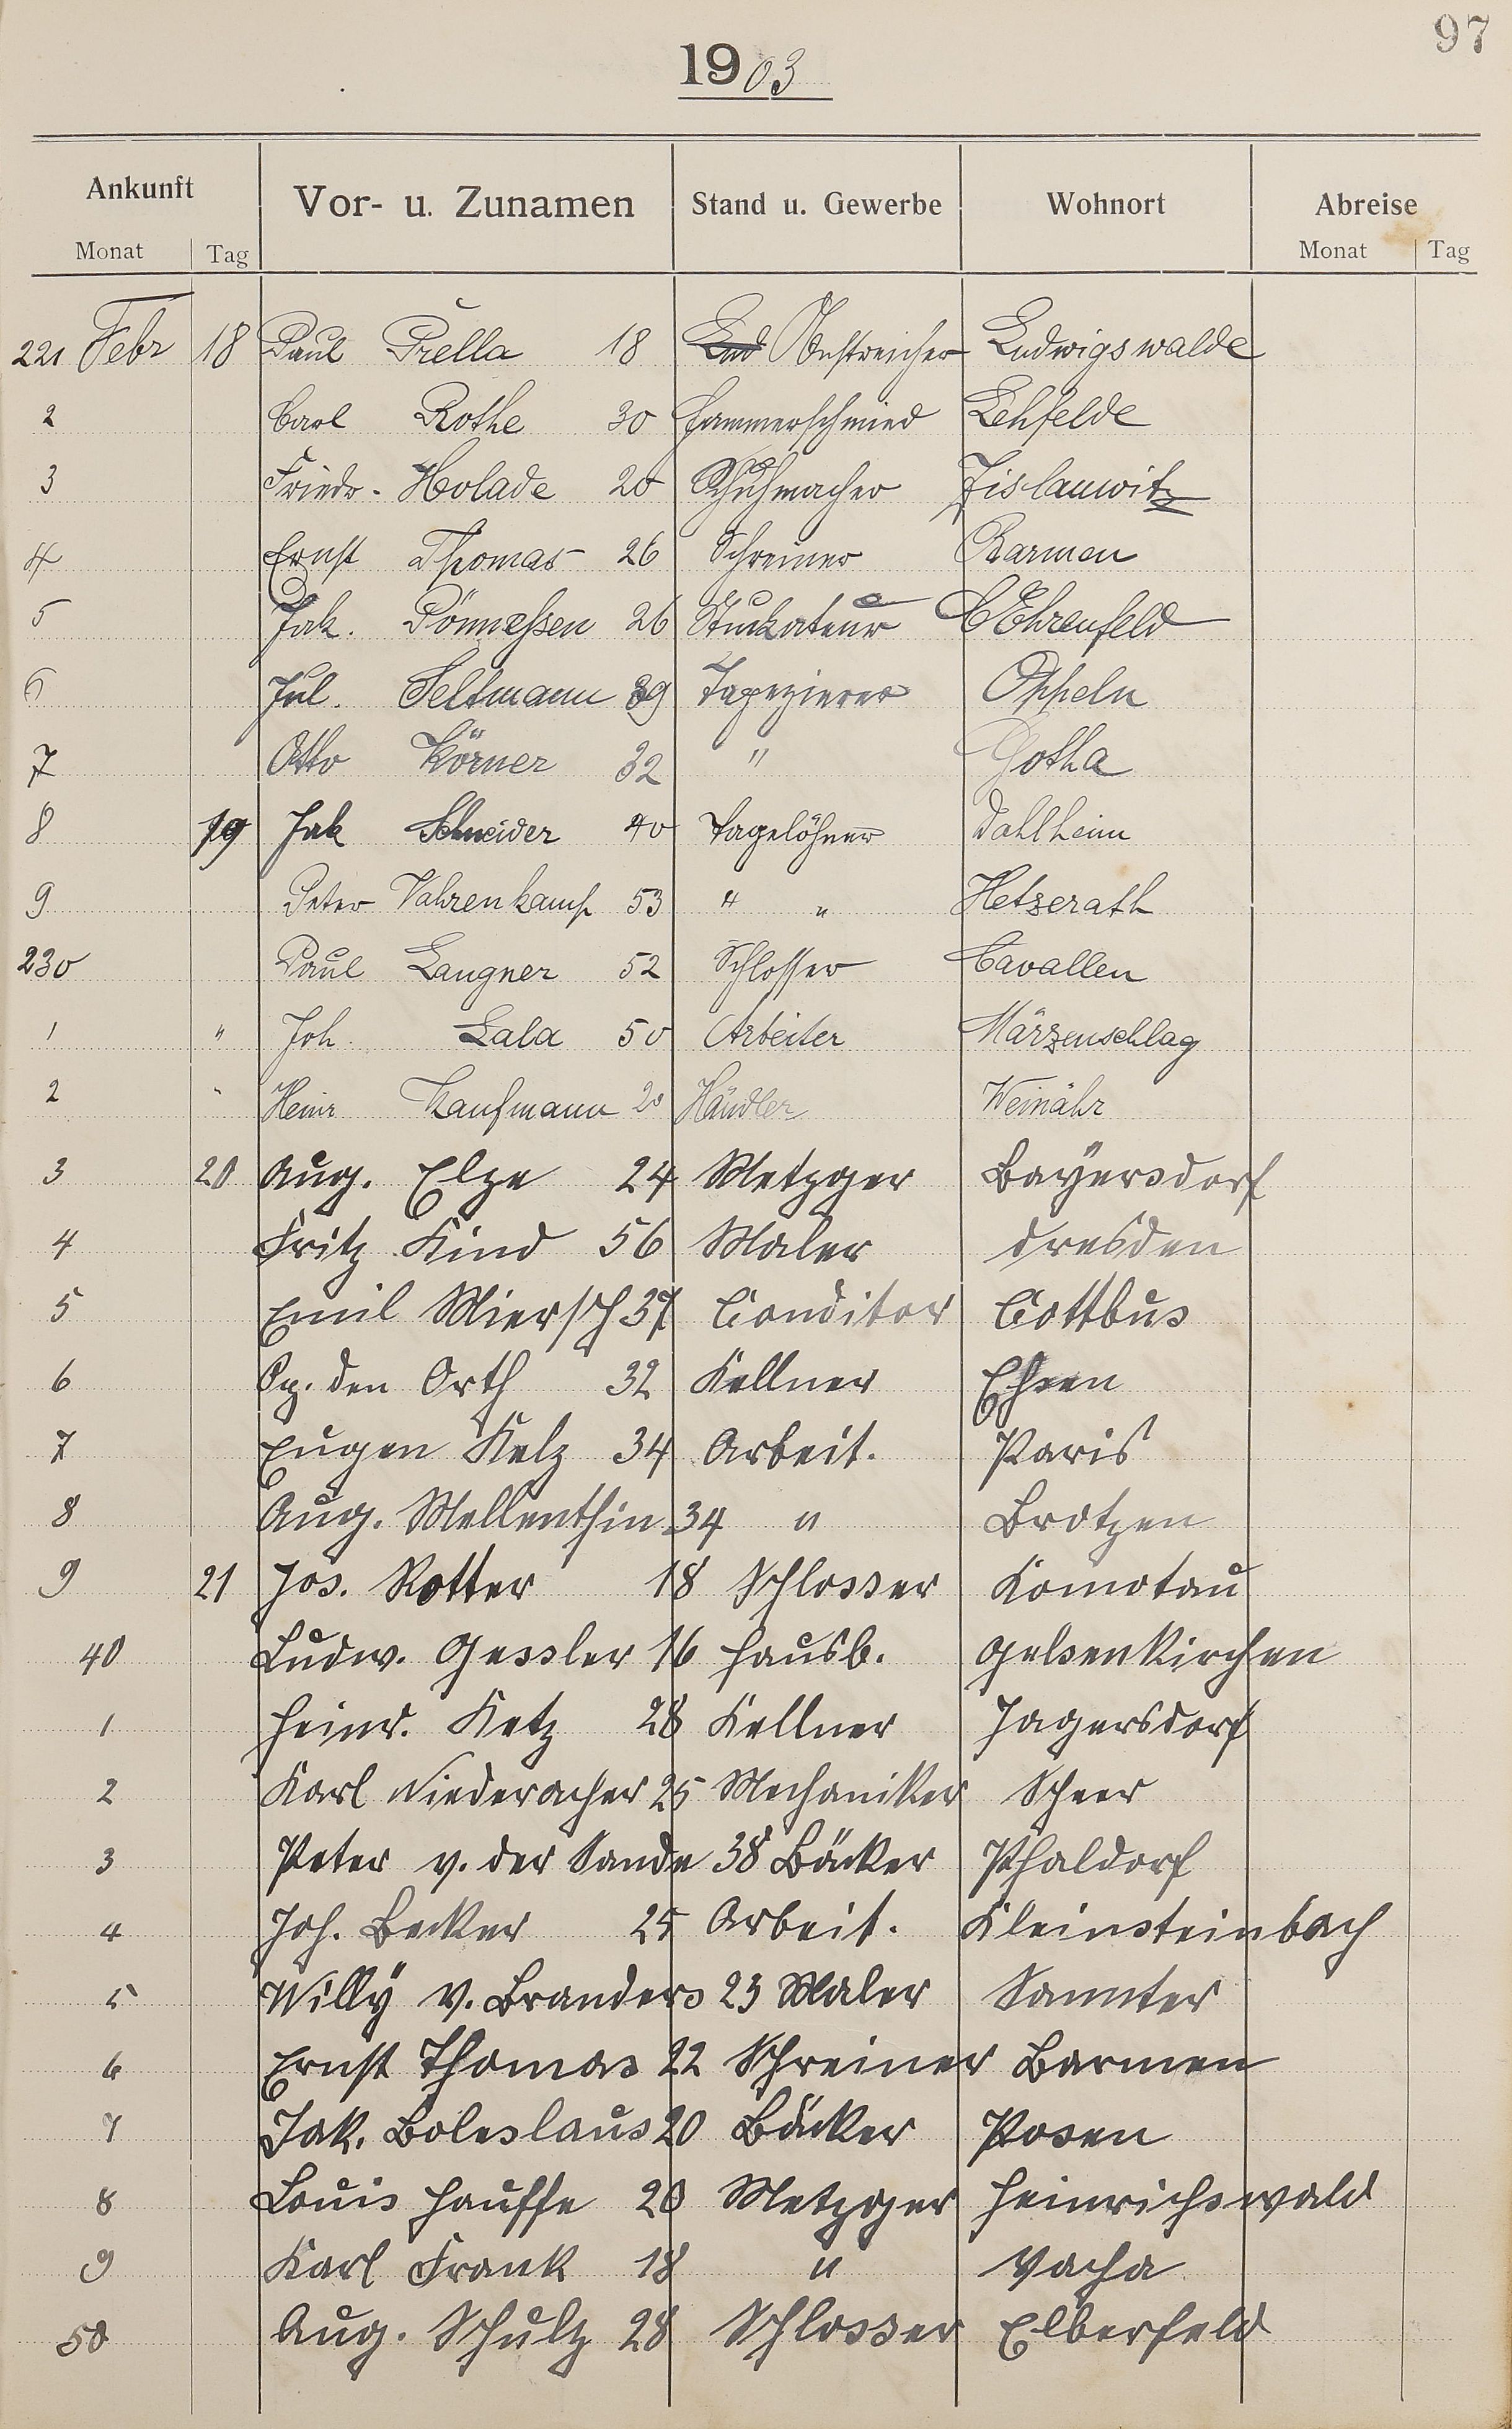 97
1903
Ankunft Vor- u. Zunamen Stand u. Gewerbe Wohnort Abreise
Monat Tag Monat Tag
221 Febr 18 Paul Prella 18 Anstreicher Ludwigswalde
2 Carl Rothe 30 Hammerschmied Lehfelde
3 Friedr. Holade 20 Schuhmacher Zislauwitz
4 Ernst Thomas 26 Schreiner Barmen
5 Jak. Pönnessen 26 Stuckateur C Ehrenfeld
6 Jul. Seltmann 39 Tapezierer Oppeln
7 Otto Körner 32 " Gotha
8 19 Jak Schneider 40 Tagelöhner Dahlheim
9 Peter Vahrenkamp 53 " " Hetzerath
230 Paul Langner 52 Schlosser Cavallen
1 " Joh. Lala 50 Arbeiter Märzenschlag
2 " Heinr Kaufmann 20 Händler Weinähr
3 20 Aug. Elze 24 Metzger Bayersdorf
4 Fritz Kind 56 Maler Dresden
5 Emil Miersch 37 Conditor Cottbus
6 den Orth 32 Kellner Essen
7 Eugen Kelz 34 Arbeit. Paris
8 Aug. Mellenthin 34 " Brotzen
9 21 Jos. Rotter 18 Schlosser Komotau
40 Ludw. Gessler 16 Hausb. Gelsenkirchen
1 Heinr. Ketz 28 Kellner Jagersdorf
2 Karl Niederacher 25 Mechaniker Scheer
3 Peter v. der Sande 38 Bäcker Phaldorf
4 Joh. Becker 25 Arbeit. Kleinsteinbach
5 Willy v. Branders 23 Maler Samter
6 Ernst Thomas 22 Schreiner Barmen
7 Jak. Boleslaus 20 Bäcker Posen
8 Louis Hauffe 20 Metzger Heinrichswald
9 Karl Frank 18 " Vacha
50 Aug. Schulz 28 Schlosser Elberfeld